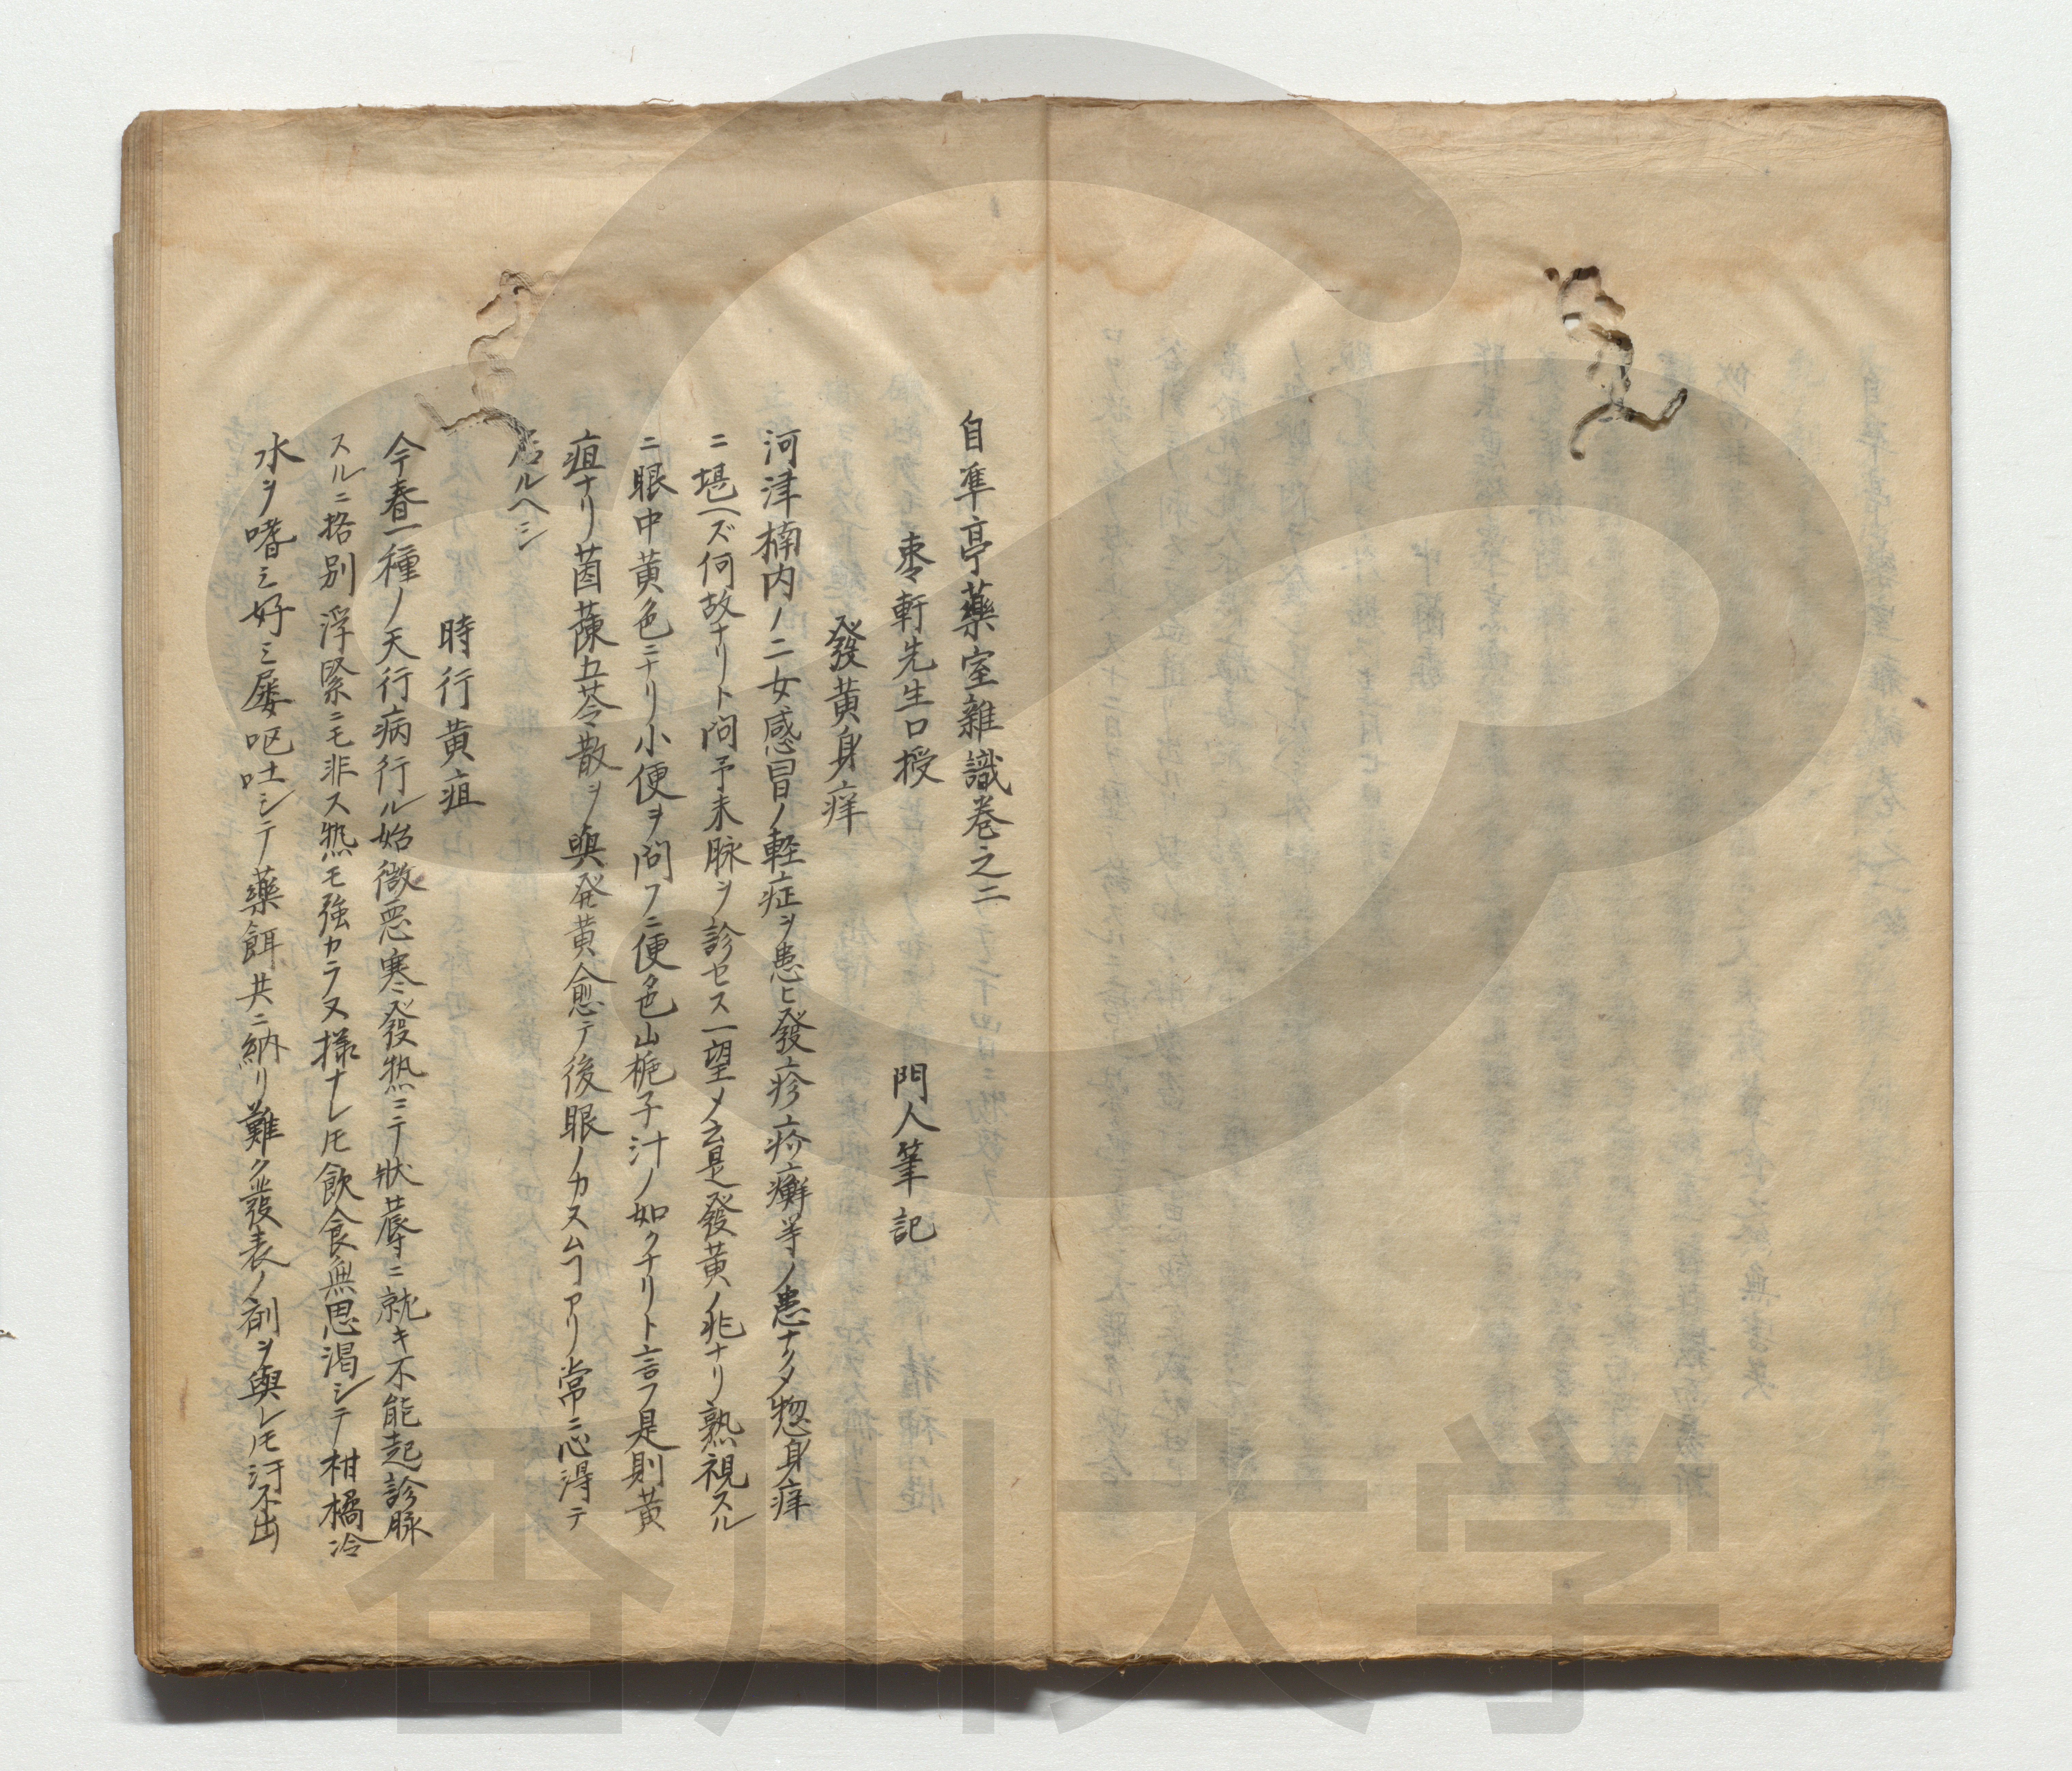 自準亭藥室雜識巻之二
棗軒先生口授　門人筆記
發黄身痒
河津楠内ノ二女感冒ノ軽症ヲ患ヒ發疹疥癬等ノ患ナクメ惣身痒
ニ堪ヘズ何故ナリト問予未脉ヲ診セス一望メ云是發黄ノ兆ナリ熟視スル
ニ眼中黄色ニナリ小便ヲ問フニ便色山梔子汁ノ如クナリト言フ是則黄
疸ナリ茵蔯五苓散ヲ與発黄愈テ後眼ノカスムヿアリ常ニ心得テ
居ルヘシ
時行黄疸
今春一種ノ天行病行ル始微悪寒發熱ニテ狀蓐ニ就キ不能起診脉
スルニ格別浮緊ニモ非ス熱モ強カラヌ様ナレ𪜈飲食無思渇シテ柑橘冷
水ヲ嗜ミ好ミ屡呕吐シテ藥餌共ニ納リ難ク發表ノ剤ヲ與レ𪜈汗不出
香川大学